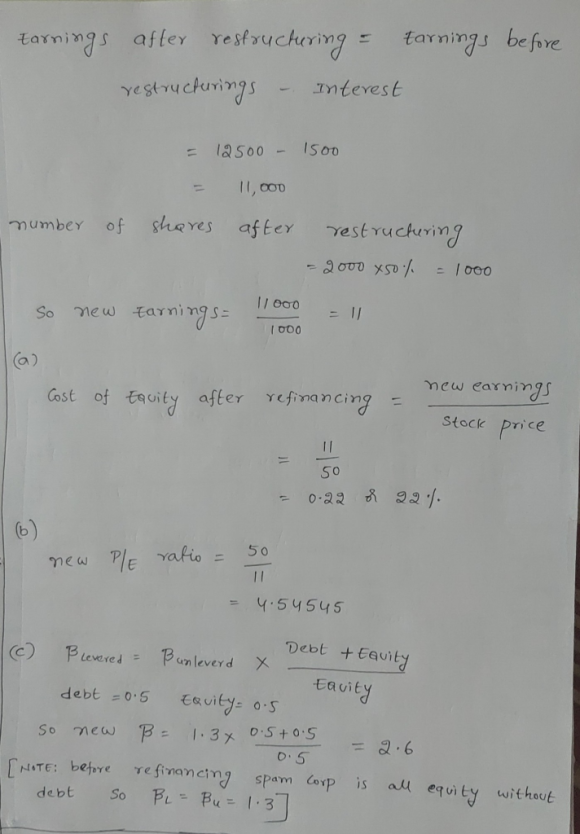 Earnings after restructuring = Earnings before
restructurings - Interest
= 12500 - 1500
= 11,000
number of shares after restructuring
= 2000 x50% = 1000
So new Earnings= 11000/1000 = 11
(a)
Cost of Equity after refinancing = new earnings/Stock price
= 11/50
= 0.22 or 22%
(b)
new P/E ratio = 50/11
= 4.54545
(c) βlevered = βunleverd x Debt + Equity/Equity
debt = 0.5 Equity= 0.5
So new β = 1.3x 0.5+0.5/0.5 = 2.6
[NOTE: before refinancing spam corp is all equity without
debt So βL = βu = 1.3]